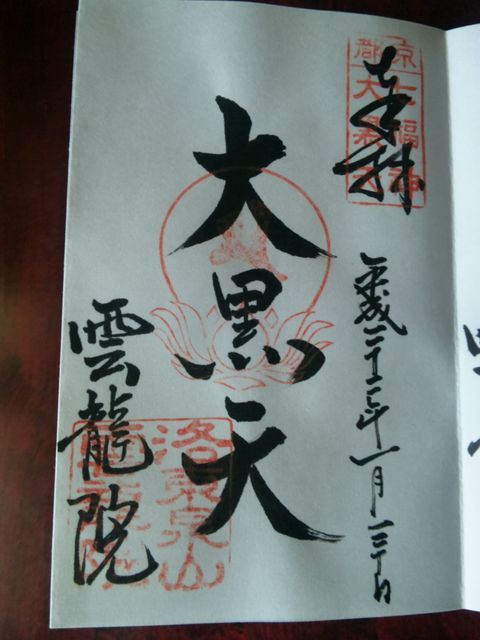 奉拝
京都
七福神
大黒天
平成
年一月
大黒天
雲龍院
洛東泉山
雲龍院